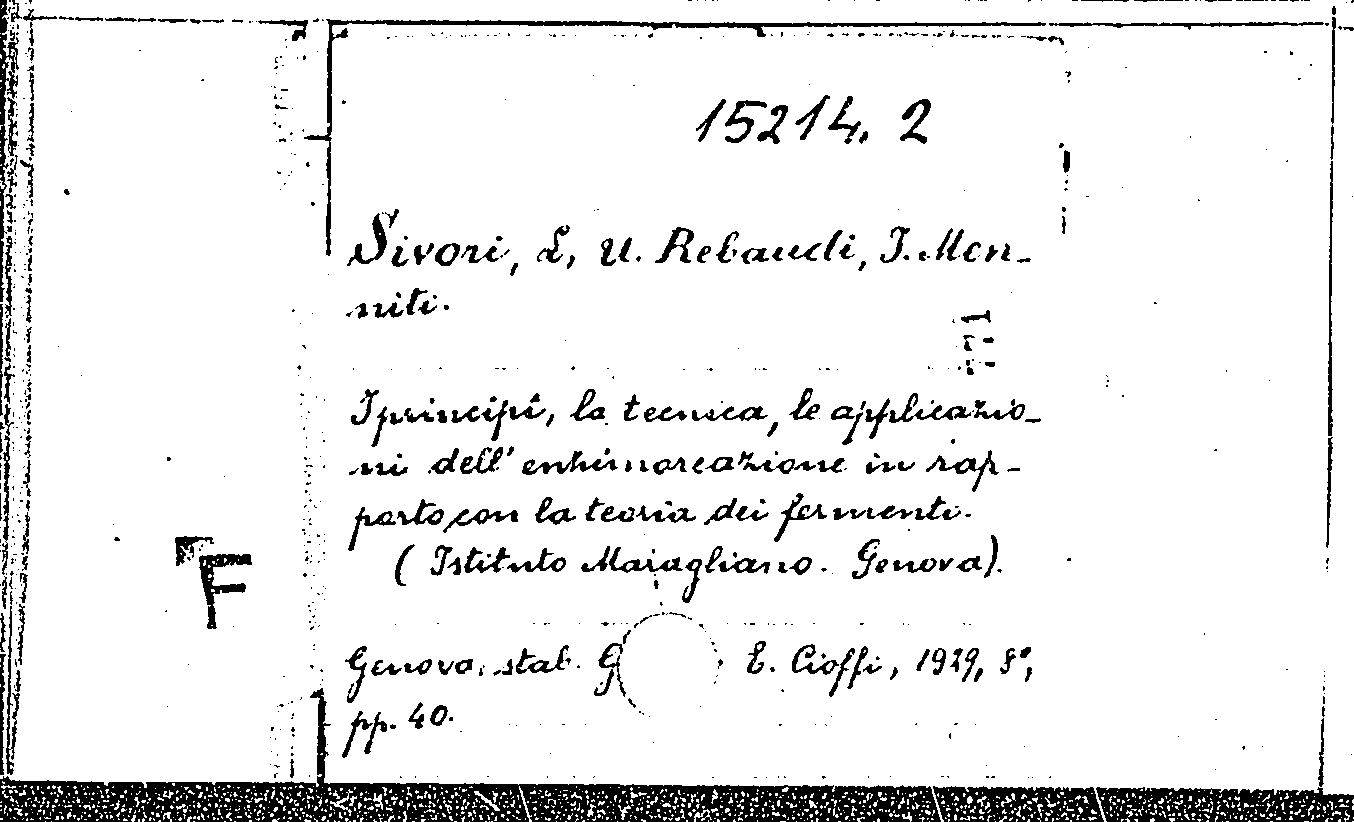 15214. 2
Sivori, L, U. Rebaudi, I. Mon-
niti.
I principî, la tecnica, le applicazio-
ni dell' enzimoreazione in rap-
porto con la teoria dei fermenti.
( Istituto Maragliano. Genova).
Genova, stab. G E. Cioffi, 1929, 8°,
pp. 40.